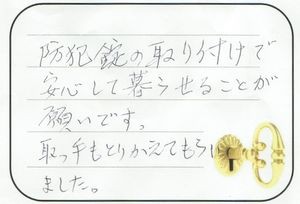 防犯錠の取り付けで
安心して暮らせることが
願いです。
取っ手もとりかえてもらい
ました。